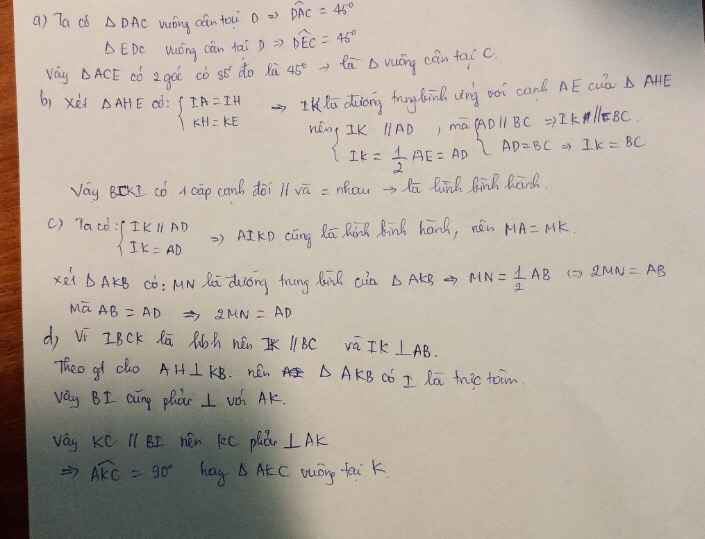 a) Ta có Δ DAC vuông cân tại D => DAC = 45°
Δ EDC vuông cân tại D => DEC = 45°
Vậy Δ ACE có 2 góc có số đo là 45° → là Δ vuông cân tại C.
b) Xét Δ AHE có: { IA = IH => IK là đường trung bình ứng với cạnh AE của Δ AHE
KH = KE
nên { IK // AD , mà { AD // BC => IK // BC.
IK = 1/2 AE = AD { AD = BC => IK = BC
Vậy BCKI có 1 cặp cạnh đối // và = nhau → là hình bình hành.
c) Ta có: { IK // AD
IK = AD => AIKD cũng là hình bình hành, nên MA = MK.
Xét Δ AKB có: MN là đường trung bình của Δ AKB => MN = 1/2 AB <=> 2MN = AB
Mà AB = AD => 2MN = AD
d) Vì IBCK là hbh nên IK // BC và IK ⊥ AB.
Theo gt cho AH ⊥ KB. nên Δ AKB có I là trực tâm.
Vậy BI cũng phải ⊥ với AK.
Vậy KC // BI nên KC phải ⊥ AK
=> AKC = 90° hay Δ AKC vuông tại K.